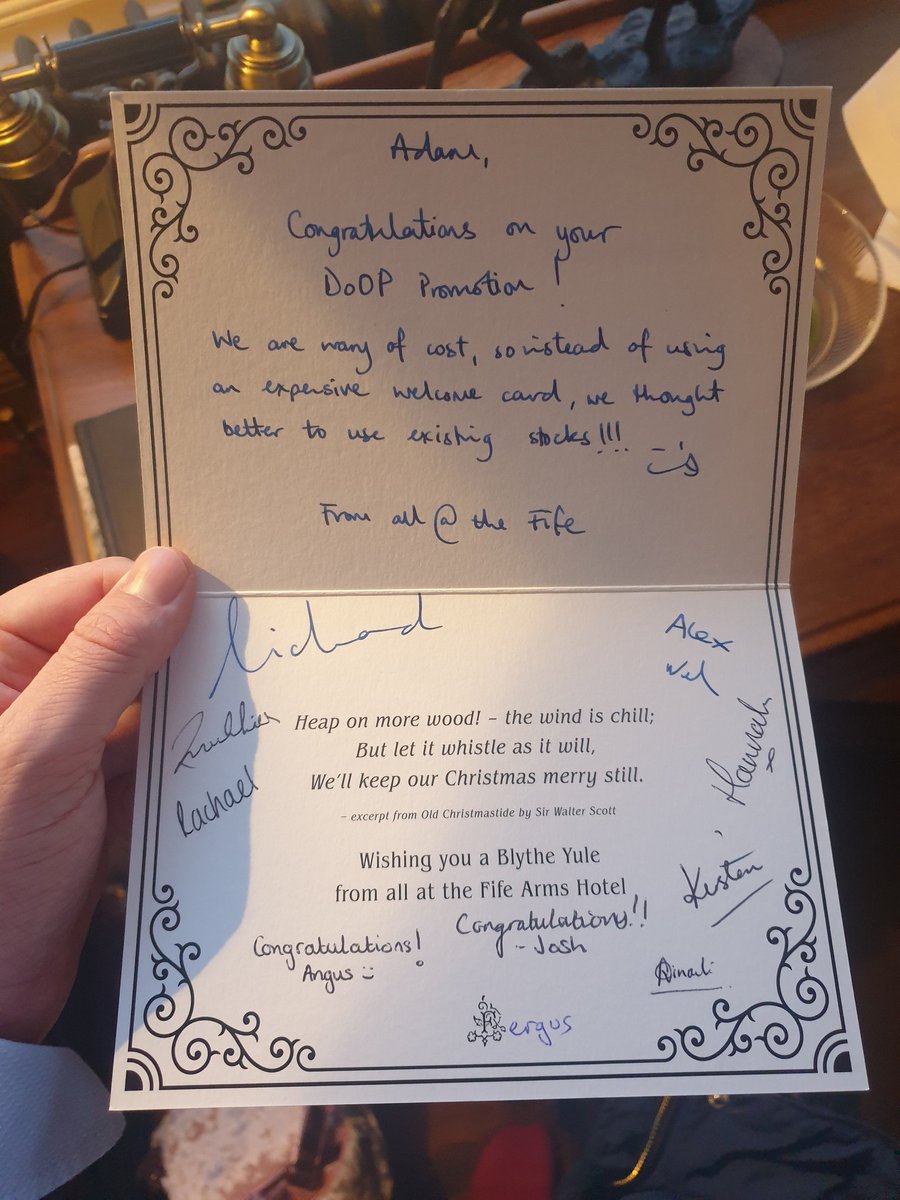 Adam,
Congratulations on your
DoOP Promotion!
We are wary of cost, so instead of using
an expensive welcome card, we thought
better to use existing stocks!!!
From all @ the Fife
Richard
Alex
Rachael
Hannah x
Heap on more wood! – the wind is chill;
But let it whistle as it will,
We'll keep our Christmas merry still.
– excerpt from Old Christmastide by Sir Walter Scott
Wishing you a Blythe Yule
from all at the Fife Arms Hotel
Kirsten
Congratulations!
Angus
Congratulations!!
- Josh
Fergus